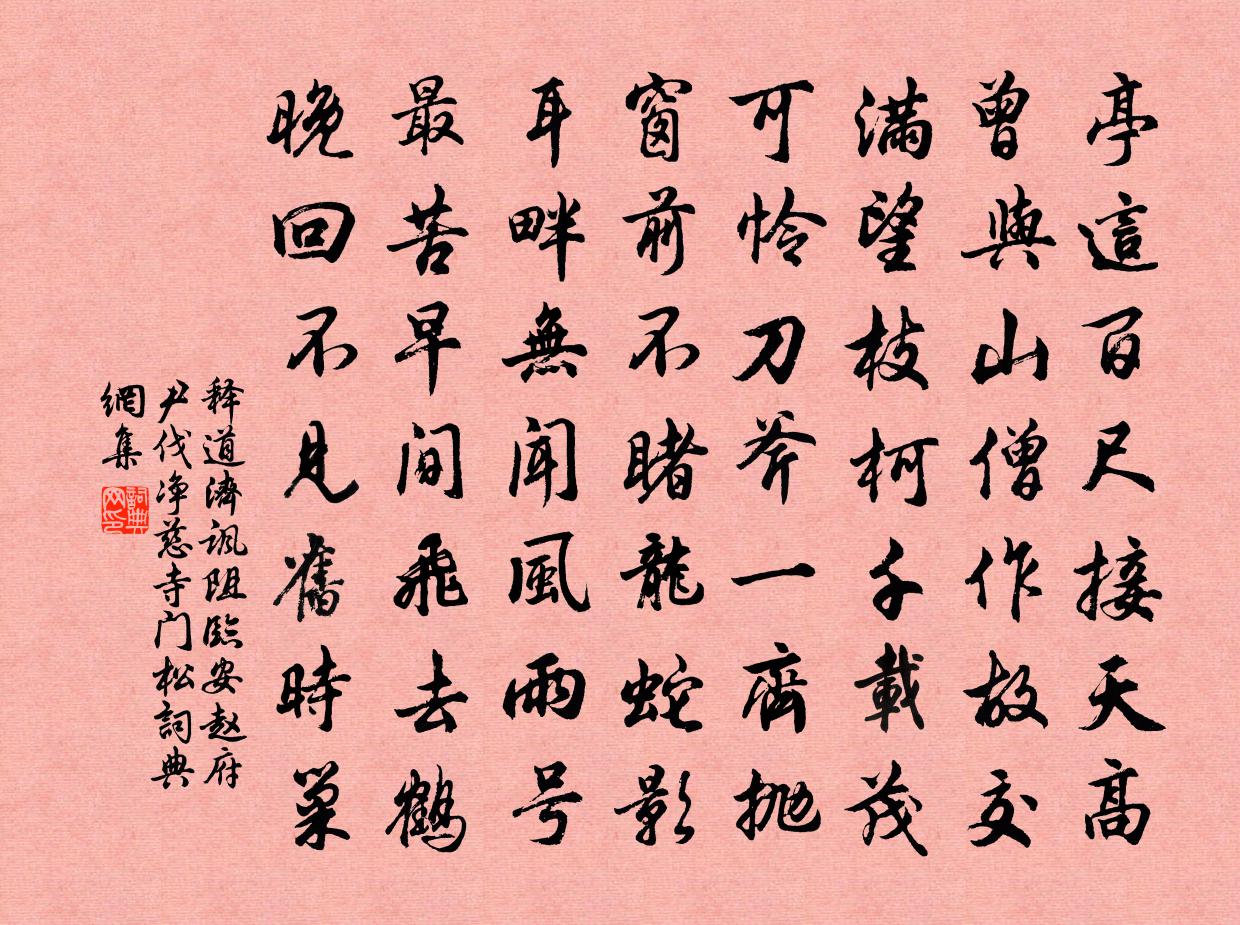 亭這百尺接天高
曾與山僧作故交
滿望枝柯千載茂
可憐刀斧一齊拋
窗前不睹龍蛇影
耳畔無聞風雨号
最苦早間飛去鶴
晚回不見舊時巢
释道濟諷阻臨安赵府
尹伐净慈寺门松詞典
網集
詞典网印